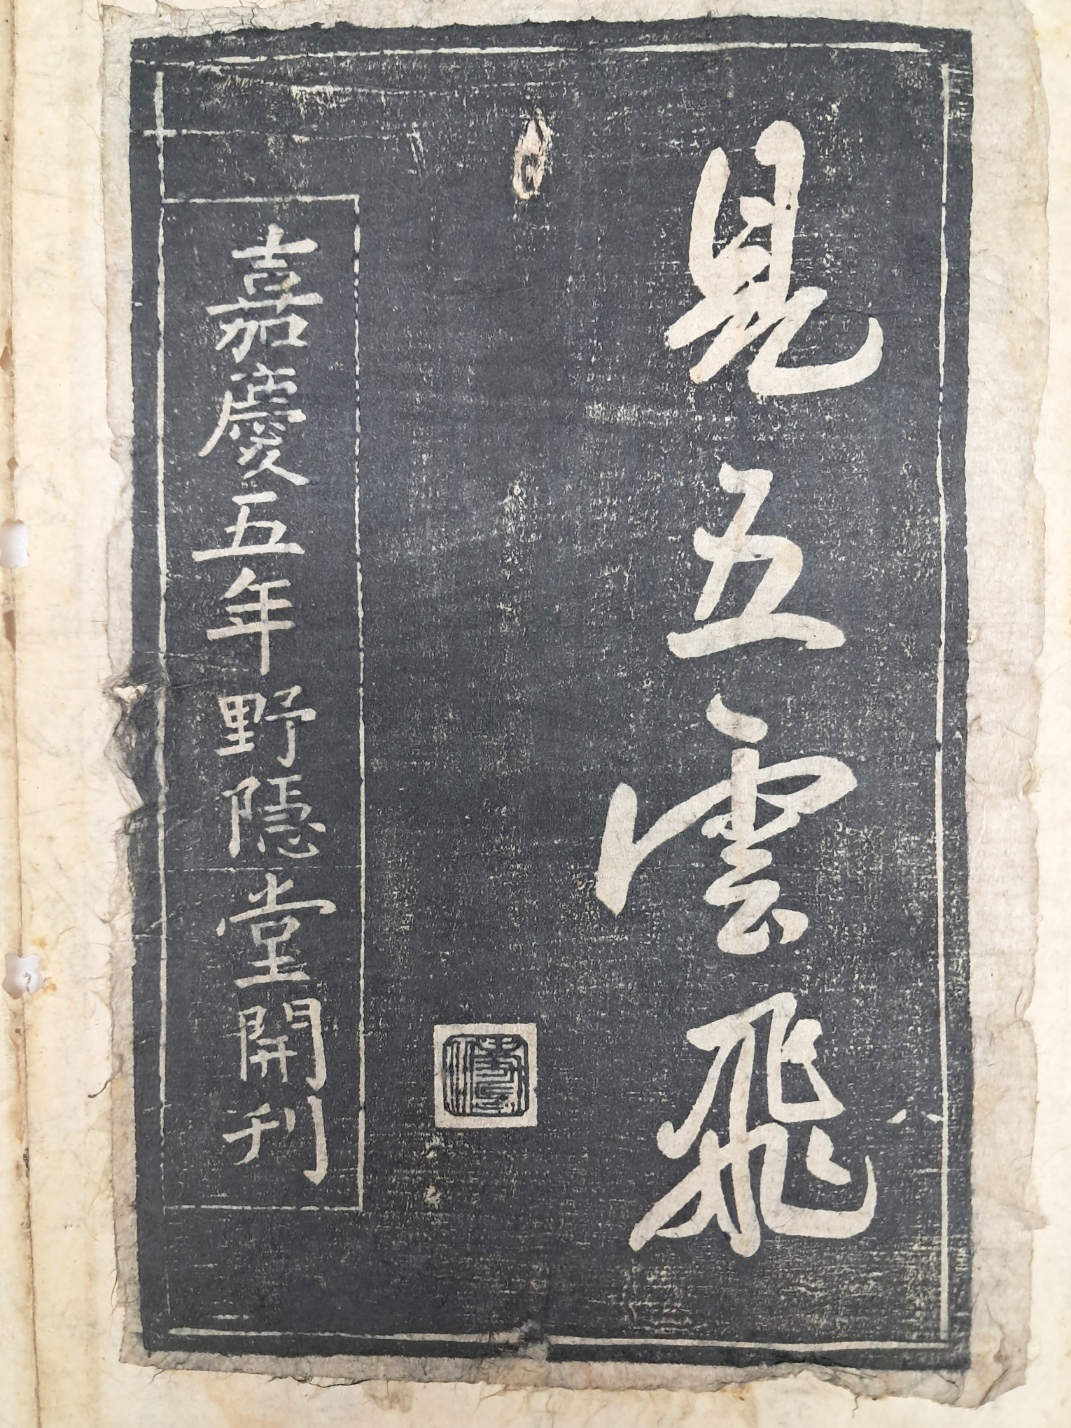 見五雲飛
嘉慶五年野隱堂開刊